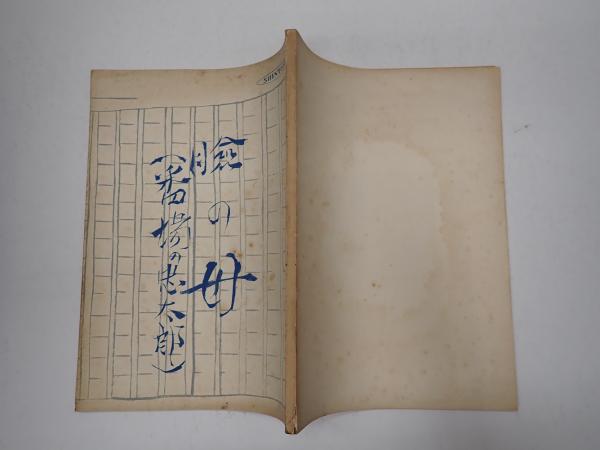 瞼の母
(番場の忠太郎)